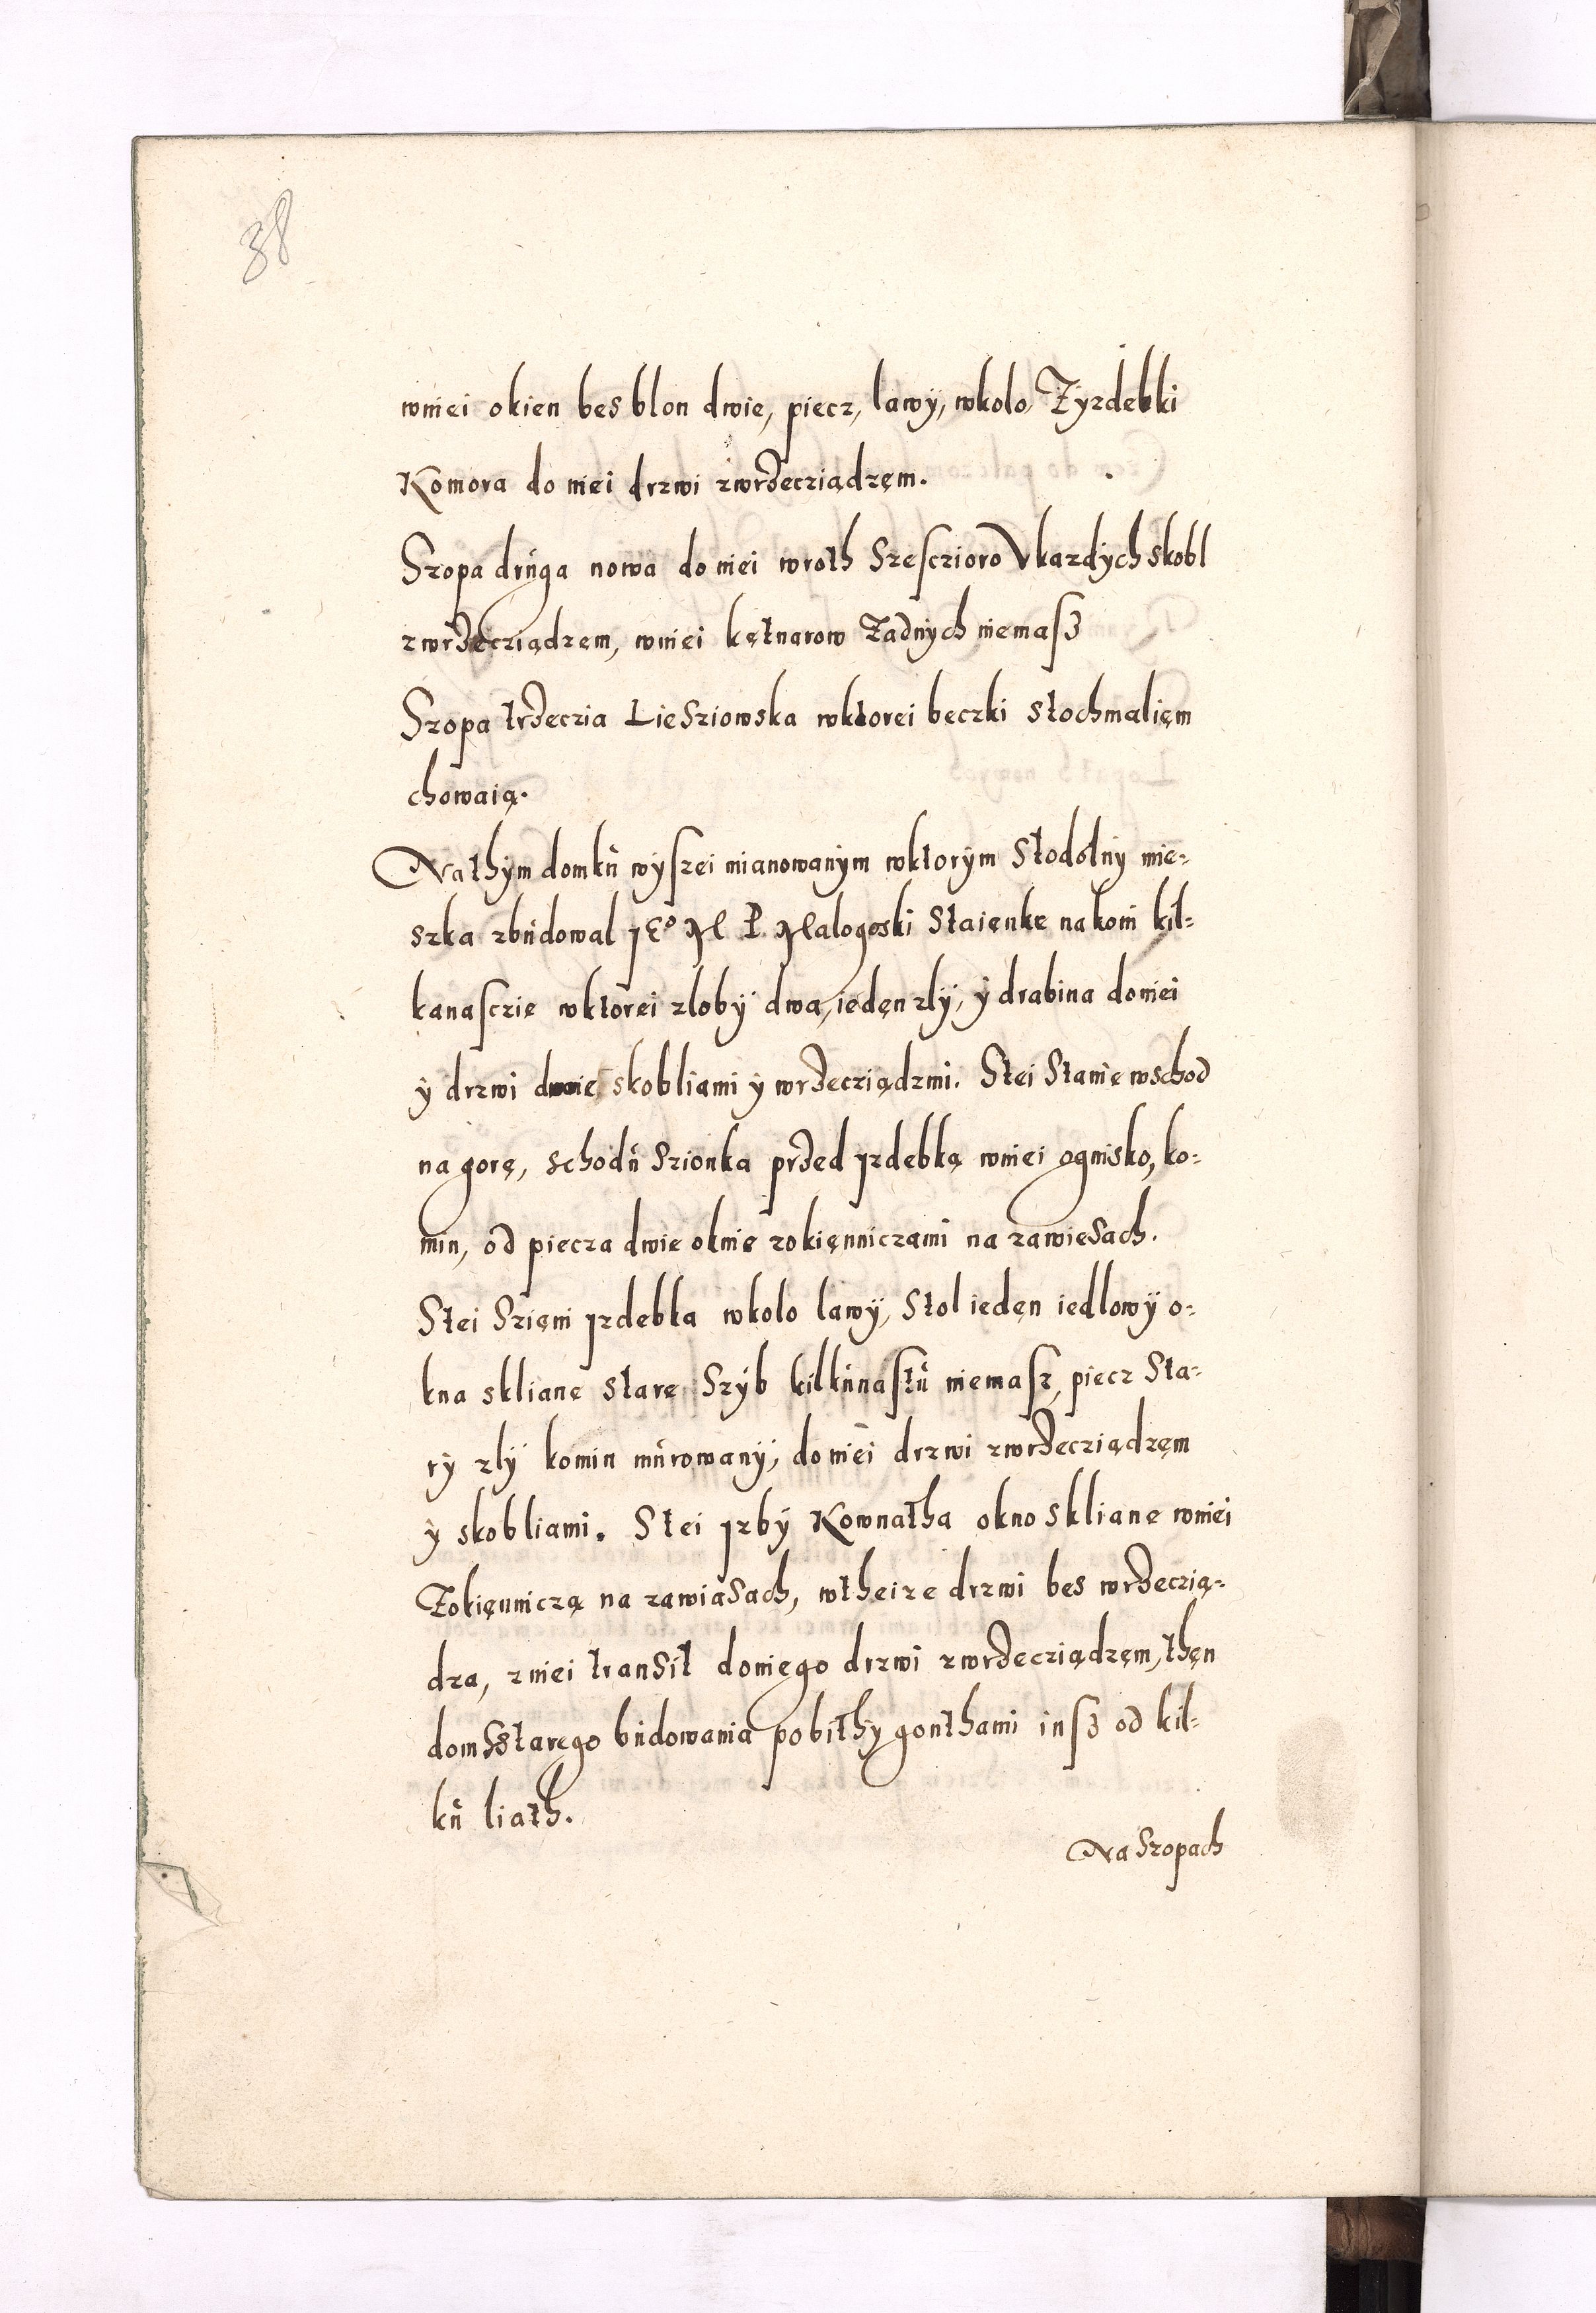 38
wniei okien bes blon dwie, piecz, lawÿ, wkolo, Zÿzdebki
Komora do niei drzwi zwrzecziądzęm.
Szopa druga nowa do niei wroth Szesczioro Vkazdÿch skobl
zwrzecziądzem, wniei kętnarow Zadnÿch niemasz
Szopa trzeczia LieSziowska wktorei beczki Stochmalięm
chowaią.
Na thÿm domku wÿszei mianowanÿm wktorÿm Stodolnÿ mie-
szka zbudowal JE° M P. Malogoski Staięnke na koni kil-
kanasczie wktorei zlobÿ dwa, iedęn zlÿ, ÿ drabina doniei
ÿ drzwi dwoie skobliami ÿ wrzecziądzmi. Stei Stanie wschod
na gorę, schodu Szionka przed Jzdebką wniei ognisko, ko-
min, od piecza dwie oknie zokięnniczami na zawieSach.
Stei Szięni Jzdebka wkolo lawÿ, Stol iedęn iedlowÿ o-
kna skliane Stare Szÿb kilkunastu niemasz, piecz Sta-
rÿ zlÿ komin murowanÿ, do niei drzwi zwrzecziądzęm
ÿ skobliami. Stei Jzbÿ Kownatha okno skliane wniei
Zokięnniczą na zawiaSach, wtheize drzwi bes wrzeczią-
dza, zniei tranSit doniego drzwi zwrzecziądzęm, thęn
dom Starego budowania pobithÿ gonthami insz od kil-
ku liath.
Na Szopach